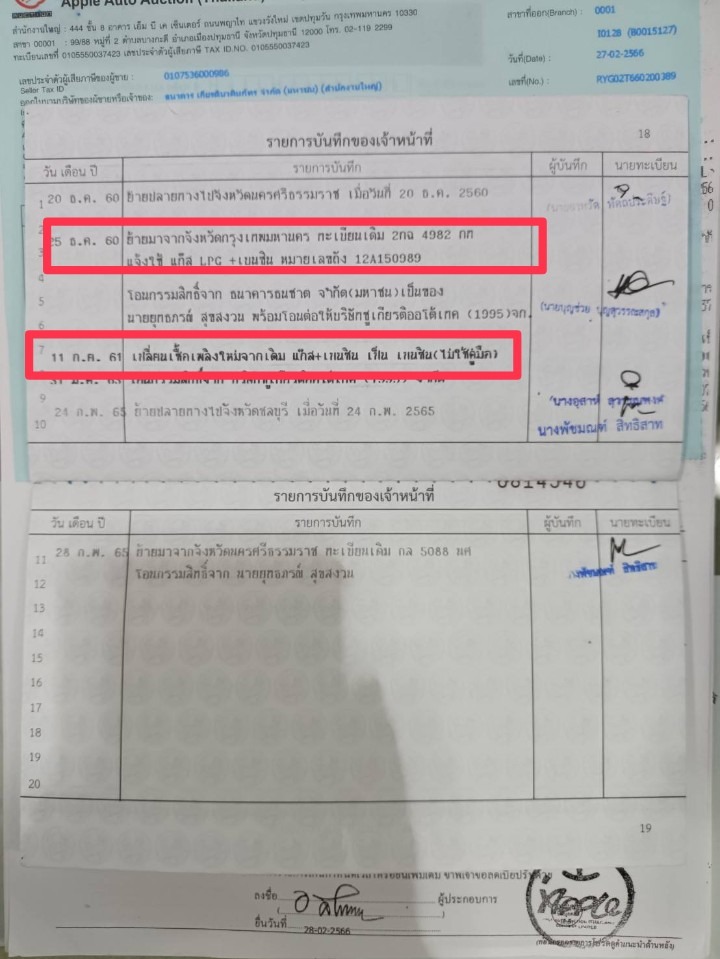 Apple Auto Auction (Thailand
สำนักงานใหญ่ : 444 ชั้น 8 อาคาร เอ็ม บี เค เซ็นเตอร์ ถนนพญาไท แขวงวังใหม่ เขตปทุมวัน กรุงเทพมหานคร 10330
สาขา 00001 : 99/88 หมู่ที่ 2 ตำบลบางกะดี อำเภอเมืองปทุมธานี จังหวัดปทุมธานี 12000 โทร. 02-119 2299
ทะเบียนเลขที่ 0105550037423 เลขประจำตัวผู้เสียภาษี TAX ID.NO. 0105550037423
สาขาที่ออก(Branch) : 0001
I0128 (B0015127)
วันที่(Date) : 27-02-2566
เลขที่(No.) : RYG02T660200389
เลขประจำตัวผู้เสียภาษีของผู้ขาย : 0107536000986
Seller Tax ID
ออกในนามบริษัทของผู้ขายหรือเจ้าของ: ธนาคาร เกียรตินาคินภัทร จำกัด (มหาชน) (สำนักงานใหญ่)
18
รายการบันทึกของเจ้าหน้าที่
วัน เดือน ปี รายการบันทึก ผู้บันทึก นายทะเบียน
1 20 ธ.ค. 60 ย้ายปลายทางไปจังหวัดนครศรีธรรมราช เมื่อวันที่ 20 ธ.ค. 2560
25 ธ.ค. 60 ย้ายมาจากจังหวัดกรุงเทพมหานคร ทะเบียนเดิม 2กฉ 4982 กท
3 แจ้งใช้ แก๊ส LPG +เบนซิน หมายเลขถัง 12A150989
4
5 โอนกรรมสิทธิ์จาก ธนาคารธนชาต จำกัด(มหาชน)เป็นของ
6 นายยุทธภรณ์ สุขสงวน พร้อมโอนต่อให้บริษัทชูเกียรติออโต้เทค (1995)จก.
(นายบุญช่วย บุญสุวรรณสกุล)
7 11 ก.ค. 61 เปลี่ยนเชื้อเพลิงใหม่จากเดิม แก๊ส+เบนซิน เป็น เบนซิน(ไม่ใช้คู่มือ)
9
10 24 ก.พ. 65 ย้ายปลายทางไปจังหวัดชลบุรี เมื่อวันที่ 24 ก.พ. 2565
นางพัชมณฑ์ สิทธิสาท
0814546
รายการบันทึกของเจ้าหน้าที่
วัน เดือน ปี รายการบันทึก ผู้บันทึก นายทะเบียน
11 28 ก.พ. 65 ย้ายมาจากจังหวัดนครศรีธรรมราช ทะเบียนเดิม กล 5088 นศ
12 โอนกรรมสิทธิ์จาก นายยุทธภรณ์ สุขสงวน
13
14
15
16
17
18
19
20
19
ลงชื่อ ผู้ประกอบการ
ยื่นวันที่ 28-02-2566